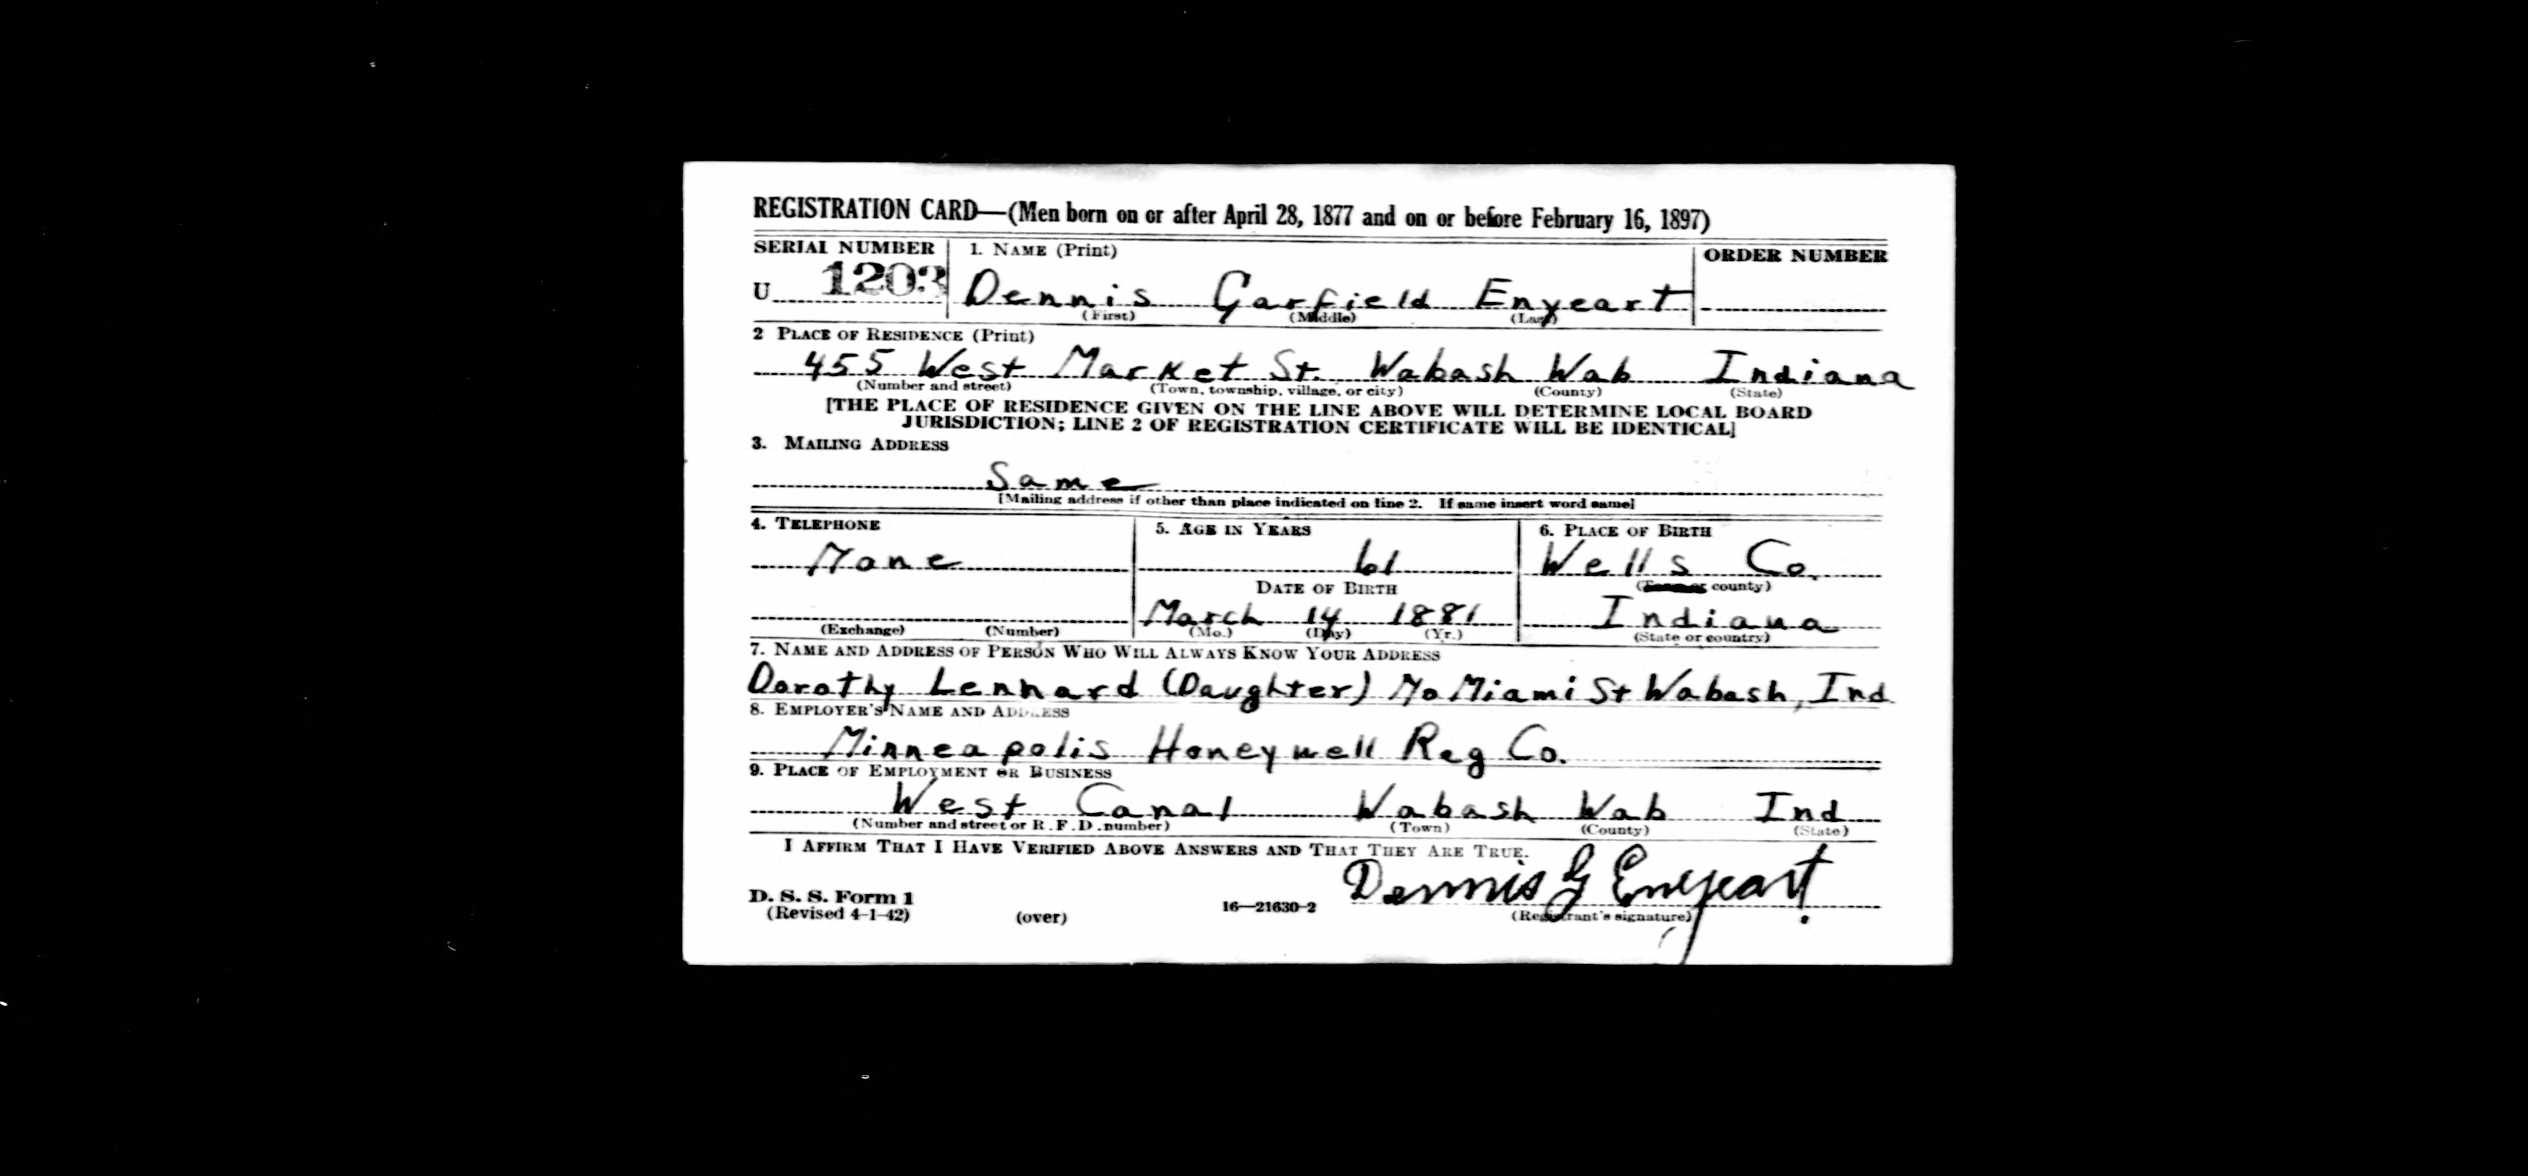 REGISTRATION CARD—(Men born on or after April 28, 1877 and on or before February 16, 1897)
SERIAL NUMBER 1. NAME (Print) ORDER NUMBER
U 1203 Dennis Garfield Enyeart
(First) (Middle) (Last)
2 PLACE OF RESIDENCE (Print)
455 West Market St. Wabash Wab Indiana
(Number and street) (Town, township, village, or city) (County) (State)
[THE PLACE OF RESIDENCE GIVEN ON THE LINE ABOVE WILL DETERMINE LOCAL BOARD
JURISDICTION; LINE 2 OF REGISTRATION CERTIFICATE WILL BE IDENTICAL]
3. MAILING ADDRESS
Same
[Mailing address if other than place indicated on line 2. If same insert word same]
4. TELEPHONE 5. AGE IN YEARS 6. PLACE OF BIRTH
None 61 Wells Co.
DATE OF BIRTH (Town or county)
March 14 1881 Indiana
(Exchange) (Number) (Mo.) (Day) (Yr.) (State or country)
7. NAME AND ADDRESS OF PERSON WHO WILL ALWAYS KNOW YOUR ADDRESS
Dorothy Lennard (Daughter) No Miami St Wabash, Ind
8. EMPLOYER'S NAME AND ADDRESS
Minneapolis Honeywell Reg Co.
9. PLACE OF EMPLOYMENT OR BUSINESS
West Canal Wabash Wab Ind
(Number and street or R. F. D. number) (Town) (County) (State)
I AFFIRM THAT I HAVE VERIFIED ABOVE ANSWERS AND THAT THEY ARE TRUE.
Dennis G Enyeart
D. S. S. Form 1
(Revised 4-1-42) (over) 16—21630-2 (Registrant's signature)